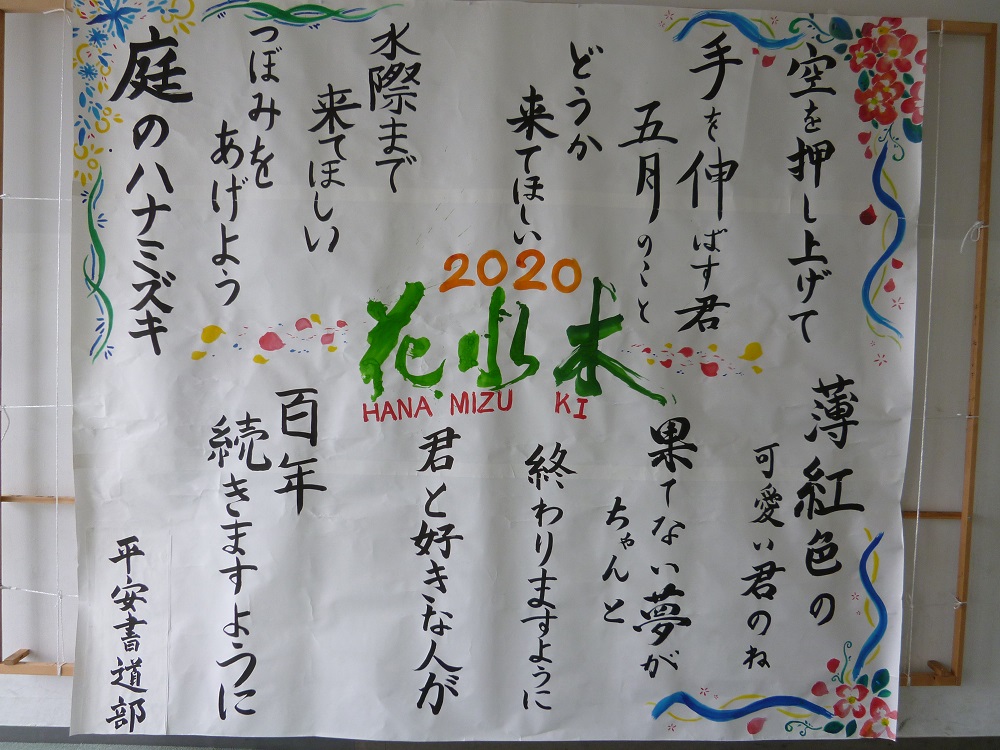 空を押し上げて
手を伸ばす君
五月のこと
どうか
来てほしい
水際まで
来てほしい
つぼみを
あげよう
庭のハナミズキ
2020
花水木
HANA MIZU KI
薄紅色の
可愛い君のね
果てない夢が
ちゃんと
終わりますように
君と好きな人が
百年
続きますように
平安書道部